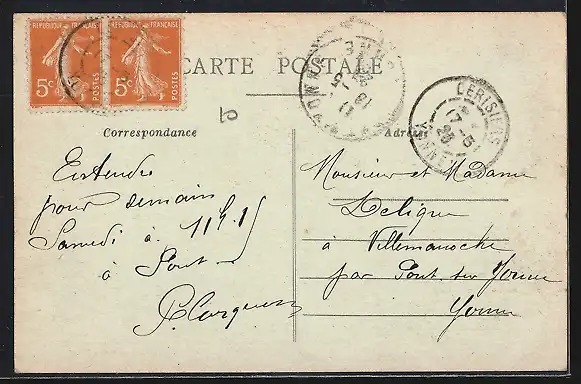 REPUBLIQUE FRANÇAISE REPUBLIQUE FRANÇAISE
5c POSTES 5c POSTES
CARTE POSTALE
Correspondance
Entendu
pour demain
Samedi à 11h 15
à Pont
Adresse
Monsieur et Madame
Delique
à Villemanoche
par Pont sur Yonne
Yonne
CERISIERS
17-5
25
YONNE